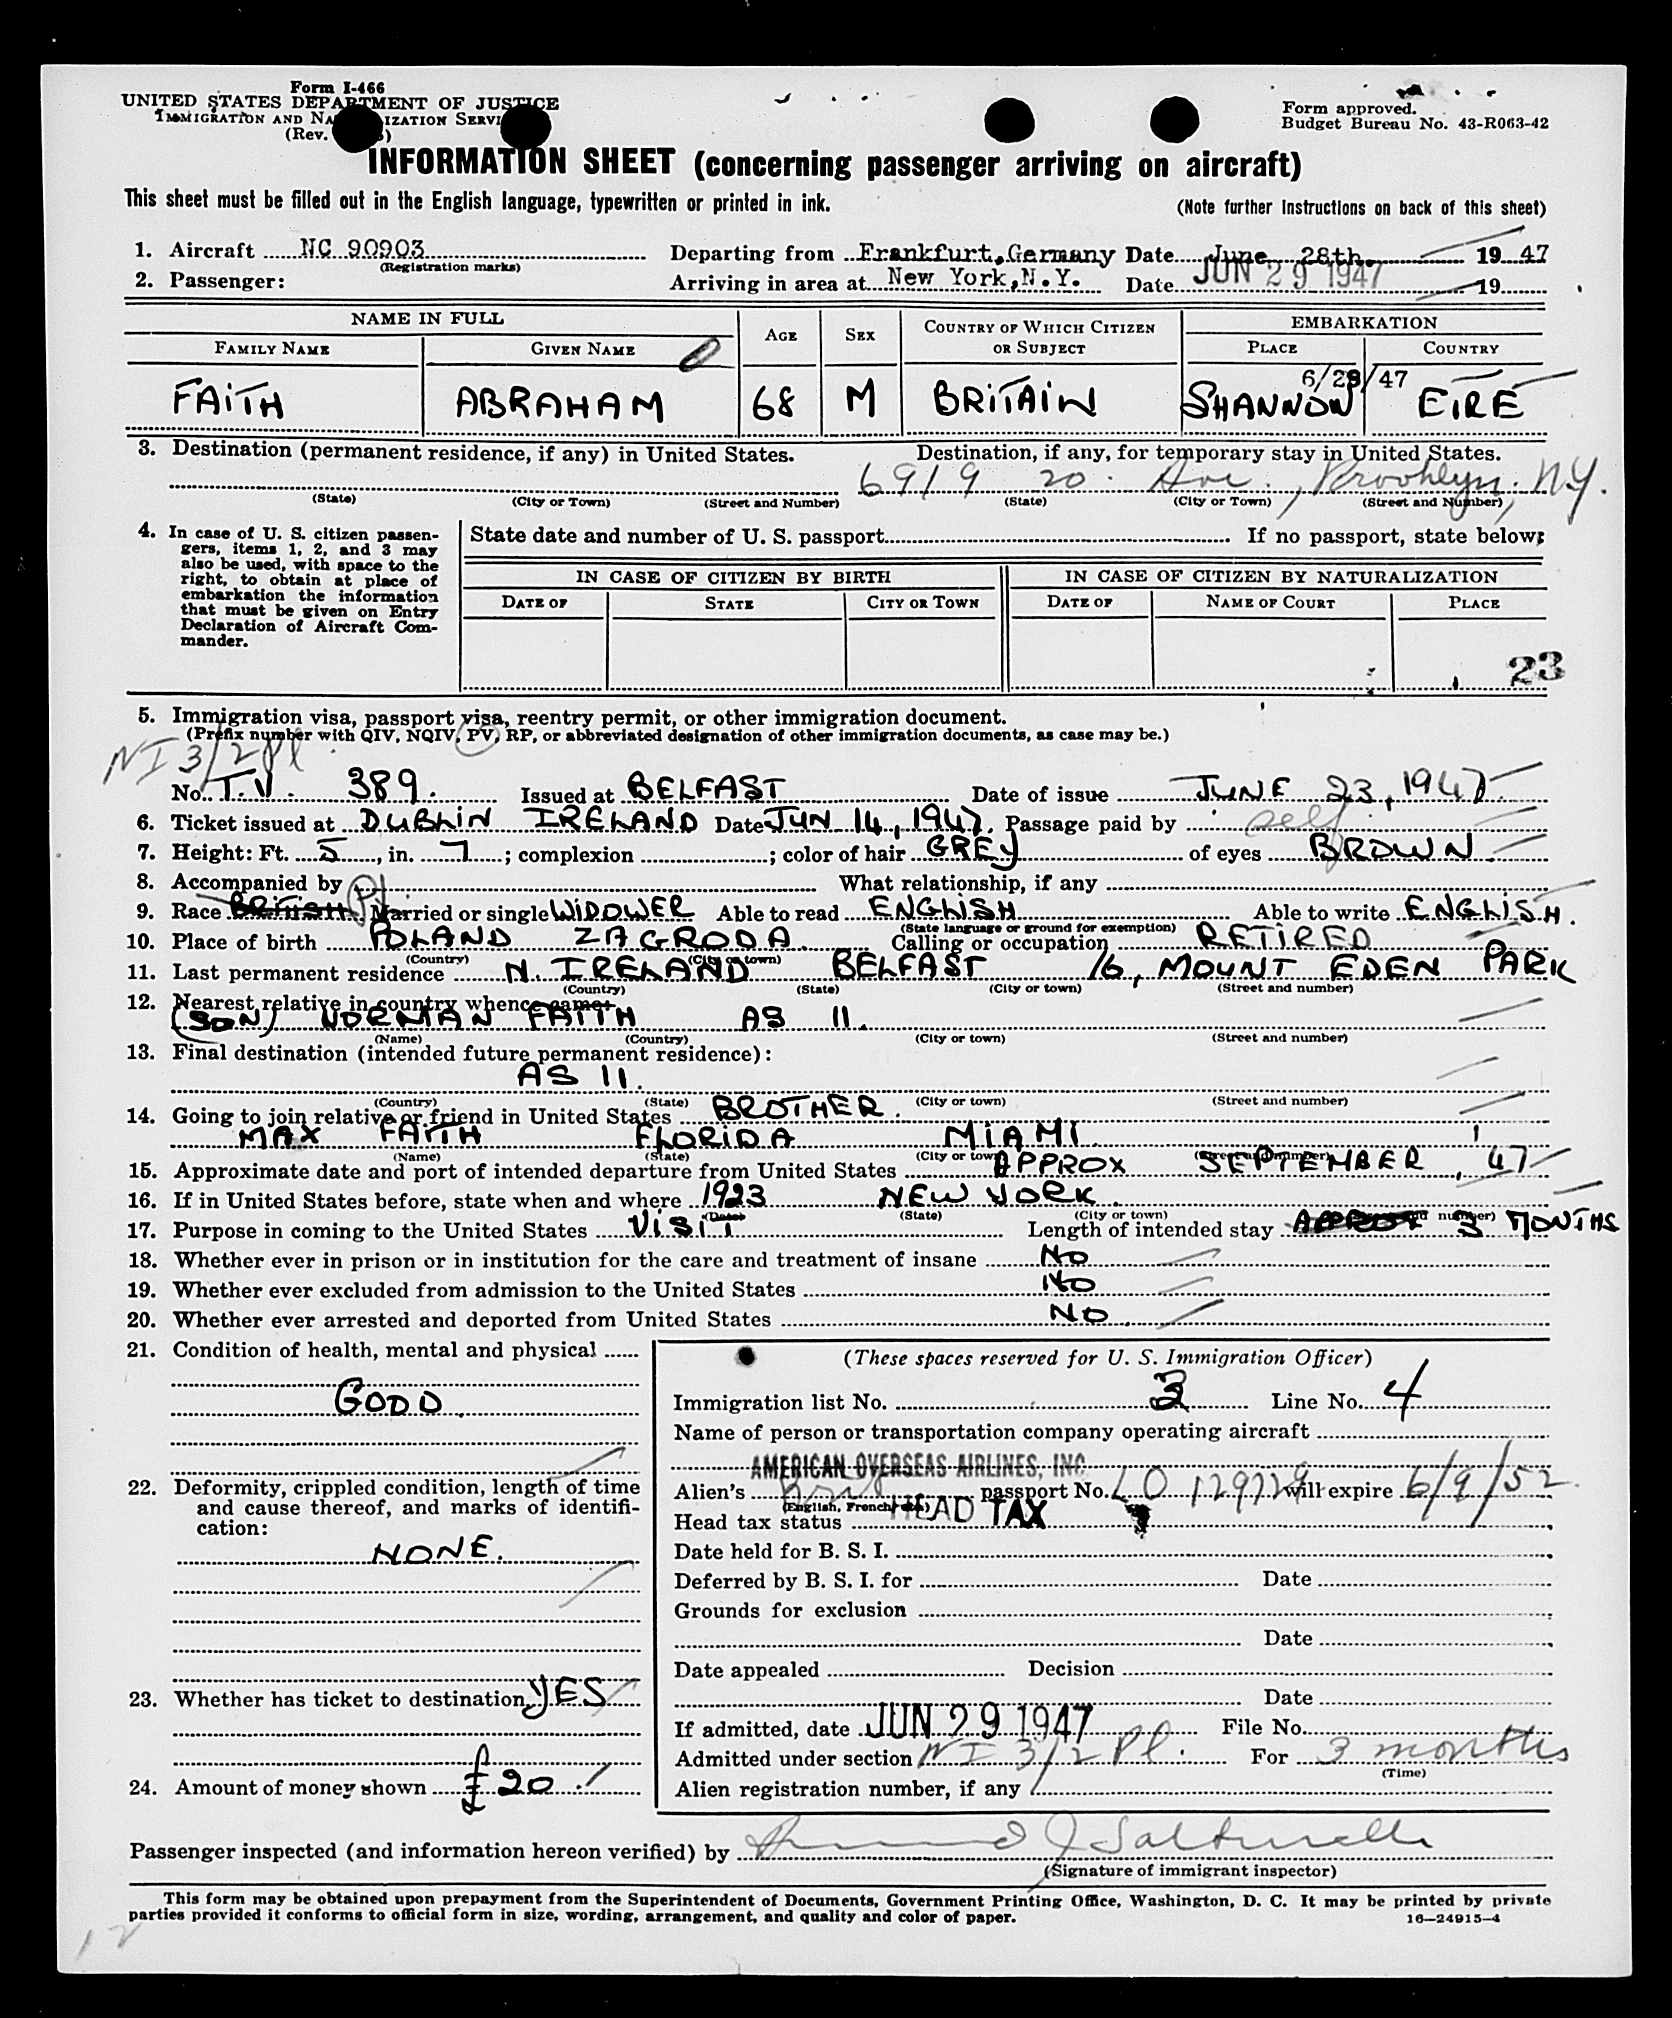 Form I-466
UNITED STATES DEPARTMENT OF JUSTICE
IMMIGRATION AND NATURALIZATION SERVICE
(Rev. )
Form approved.
Budget Bureau No. 43-R063-42
INFORMATION SHEET (concerning passenger arriving on aircraft)
This sheet must be filled out in the English language, typewritten or printed in ink.
(Note further Instructions on back of this sheet)
1. Aircraft NC 90903 Departing from Frankfurt, Germany Date June 28th 1947
(Registration marks)
2. Passenger: Arriving in area at New York, N.Y. Date JUN 29 1947 19
NAME IN FULL AGE SEX COUNTRY OF WHICH CITIZEN OR SUBJECT EMBARKATION
FAMILY NAME GIVEN NAME PLACE COUNTRY
6/28/47
FAITH ABRAHAM 68 M BRITAIN SHANNON EIRE
3. Destination (permanent residence, if any) in United States. Destination, if any, for temporary stay in United States.
6919 20 Ave., Brooklyn, N.Y.
(State) (City or Town) (Street and Number) (State) (City or Town) (Street and Number)
4. In case of U. S. citizen passengers, items 1, 2, and 3 may also be used, with space to the right, to obtain at place of embarkation the information that must be given on Entry Declaration of Aircraft Commander.
State date and number of U. S. passport If no passport, state below:
IN CASE OF CITIZEN BY BIRTH IN CASE OF CITIZEN BY NATURALIZATION
DATE OF STATE CITY OR TOWN DATE OF NAME OF COURT PLACE
23
5. Immigration visa, passport visa, reentry permit, or other immigration document.
(Prefix number with QIV, NQIV, PV, RP, or abbreviated designation of other immigration documents, as case may be.)
NI 3/2 Pl
No. T.V. 389. Issued at BELFAST Date of issue JUNE 23, 1947
6. Ticket issued at DUBLIN IRELAND Date JUN 14, 1947. Passage paid by self
7. Height: Ft. 5, in. 7; complexion ; color of hair GREY of eyes BROWN
8. Accompanied by What relationship, if any
9. Race BRITISH Pl Married or single WIDOWER Able to read ENGLISH Able to write ENGLISH.
(State language or ground for exemption)
10. Place of birth POLAND ZAGRODA. Calling or occupation RETIRED
(Country) (City or town)
11. Last permanent residence N. IRELAND BELFAST 16, MOUNT EDEN PARK
(Country) (State) (City or town) (Street and number)
12. Nearest relative in country whence came:
(SON) NORMAN FAITH AS 11.
(Name) (Country) (City or town) (Street and number)
13. Final destination (intended future permanent residence):
AS 11.
(Country) (State) (City or town) (Street and number)
14. Going to join relative or friend in United States BROTHER.
MAX FAITH FLORIDA MIAMI.
(Name) (State) (City or town) (Street and number)
15. Approximate date and port of intended departure from United States APPROX SEPTEMBER, 47
16. If in United States before, state when and where 1923 NEW YORK.
(Date) (State) (City or town) (Street and number)
17. Purpose in coming to the United States VISIT Length of intended stay APPROX 3 MONTHS
18. Whether ever in prison or in institution for the care and treatment of insane NO
19. Whether ever excluded from admission to the United States NO
20. Whether ever arrested and deported from United States NO.
21. Condition of health, mental and physical
GOOD.
22. Deformity, crippled condition, length of time and cause thereof, and marks of identification:
NONE.
23. Whether has ticket to destination YES
24. Amount of money shown £20.
(These spaces reserved for U. S. Immigration Officer)
Immigration list No. 3 Line No. 4
Name of person or transportation company operating aircraft
AMERICAN OVERSEAS AIRLINES, INC.
Alien's Brit passport No. LO 129729 will expire 6/9/52.
(English, French, etc.)
Head tax status HEAD TAX
Date held for B. S. I.
Deferred by B. S. I. for Date
Grounds for exclusion
Date
Date appealed Decision
Date
If admitted, date JUN 29 1947 File No.
Admitted under section NI 3/2 Pl. For 3 months
(Time)
Alien registration number, if any
Passenger inspected (and information hereon verified) by
(Signature of immigrant inspector)
This form may be obtained upon prepayment from the Superintendent of Documents, Government Printing Office, Washington, D. C. It may be printed by private
parties provided it conforms to official form in size, wording, arrangement, and quality and color of paper.
16—24915-4
12